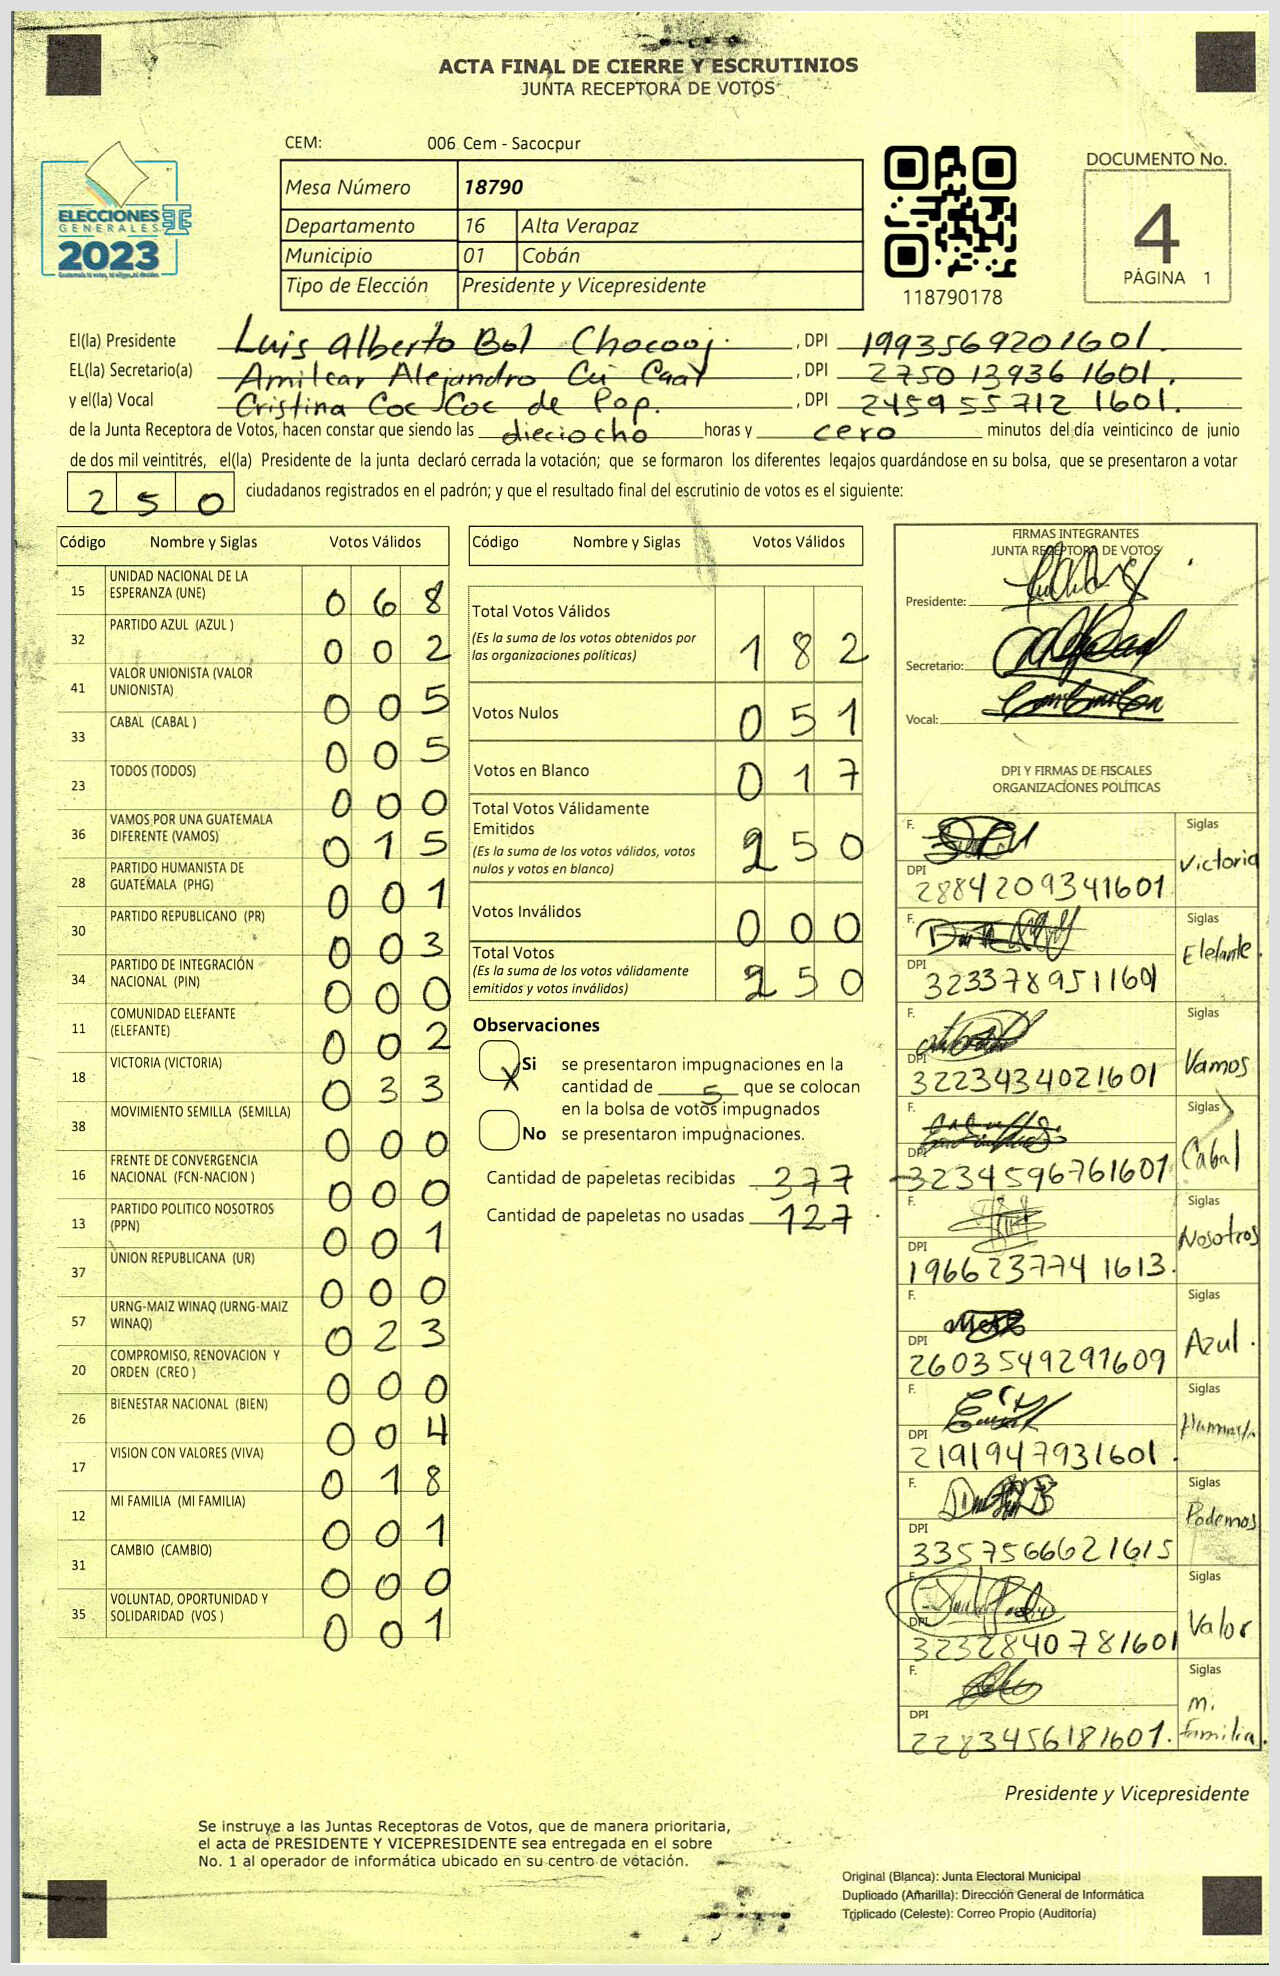 ACTA FINAL DE CIERRE Y ESCRUTINIOS
JUNTA RECEPTORA DE VOTOS
CEM: 006 Cem - Sacocpur
ELECCIONES
GENERALES
2023
Mesa Número 18790
Departamento 16 Alta Verapaz
Municipio 01 Cobán
Tipo de Elección Presidente y Vicepresidente
118790178
DOCUMENTO No.
4
PÁGINA 1
El(la) Presidente Luis Alberto Bol Chocooj. , DPI 1993569201601.
EL(la) Secretario(a) Amilcar Alejandro Cú Caal , DPI 2750139361601.
y el(la) Vocal Cristina Coc Coc de Pop. , DPI 2459557121601.
de la Junta Receptora de Votos, hacen constar que siendo las dieciocho horas y cero minutos del día veinticinco de junio
de dos mil veintitrés, el(la) Presidente de la junta declaró cerrada la votación; que se formaron los diferentes legajos quardándose en su bolsa, que se presentaron a votar
250 ciudadanos registrados en el padrón; y que el resultado final del escrutinio de votos es el siguiente:
Código Nombre y Siglas Votos Válidos
15 UNIDAD NACIONAL DE LA
ESPERANZA (UNE) 068
32 PARTIDO AZUL (AZUL ) 002
41 VALOR UNIONISTA (VALOR
UNIONISTA) 005
33 CABAL (CABAL ) 005
23 TODOS (TODOS) 000
36 VAMOS POR UNA GUATEMALA
DIFERENTE (VAMOS) 015
28 PARTIDO HUMANISTA DE
GUATEMALA (PHG) 001
30 PARTIDO REPUBLICANO (PR) 003
34 PARTIDO DE INTEGRACIÓN
NACIONAL (PIN) 000
11 COMUNIDAD ELEFANTE
(ELEFANTE) 002
18 VICTORIA (VICTORIA) 033
38 MOVIMIENTO SEMILLA (SEMILLA) 000
16 FRENTE DE CONVERGENCIA
NACIONAL (FCN-NACION ) 000
13 PARTIDO POLITICO NOSOTROS
(PPN) 001
37 UNION REPUBLICANA (UR) 000
57 URNG-MAIZ WINAQ (URNG-MAIZ
WINAQ) 023
20 COMPROMISO, RENOVACION Y
ORDEN (CREO ) 000
26 BIENESTAR NACIONAL (BIEN) 004
17 VISION CON VALORES (VIVA) 018
12 MI FAMILIA (MI FAMILIA) 001
31 CAMBIO (CAMBIO) 000
35 VOLUNTAD, OPORTUNIDAD Y
SOLIDARIDAD (VOS ) 001
Código Nombre y Siglas Votos Válidos
Total Votos Válidos
(Es la suma de los votos obtenidos por
las organizaciones políticas) 182
Votos Nulos 051
Votos en Blanco 017
Total Votos Válidamente
Emitidos
(Es la suma de los votos válidos, votos
nulos y votos en blanco) 250
Votos Inválidos 000
Total Votos
(Es la suma de los votos válidamente
emitidos y votos inválidos) 250
Observaciones
X Si se presentaron impugnaciones en la
cantidad de 5 que se colocan
en la bolsa de votos impugnados
No se presentaron impugnaciones.
Cantidad de papeletas recibidas 377
Cantidad de papeletas no usadas 127
FIRMAS INTEGRANTES
JUNTA RECEPTORA DE VOTOS
Presidente:
Secretario:
Vocal:
DPI Y FIRMAS DE FISCALES
ORGANIZACÍONES POLÍTICAS
F. Siglas Victoria
DPI 2884209341601
F. Siglas Elefante.
DPI 3233789511601
F. Siglas Vamos
DPI 3223434021601
F. Siglas Cabal
DPI 3234596761601
F. Siglas Nosotros
DPI 1966237741613.
F. Siglas Azul.
DPI 2603549291609
F. Siglas
DPI 2191947931601.
F. Siglas Podemos
DPI 3357566621615
F. Siglas Valor
DPI 3232840781601
F. Siglas mi
familia.
DPI 2283456181601.
Presidente y Vicepresidente
Se instruye a las Juntas Receptoras de Votos, que de manera prioritaria,
el acta de PRESIDENTE Y VICEPRESIDENTE sea entregada en el sobre
No. 1 al operador de informática ubicado en su centro de votación.
Original (Blanca): Junta Electoral Municipal
Duplicado (Amarilla): Dirección General de Informática
Triplicado (Celeste): Correo Propio (Auditoría)